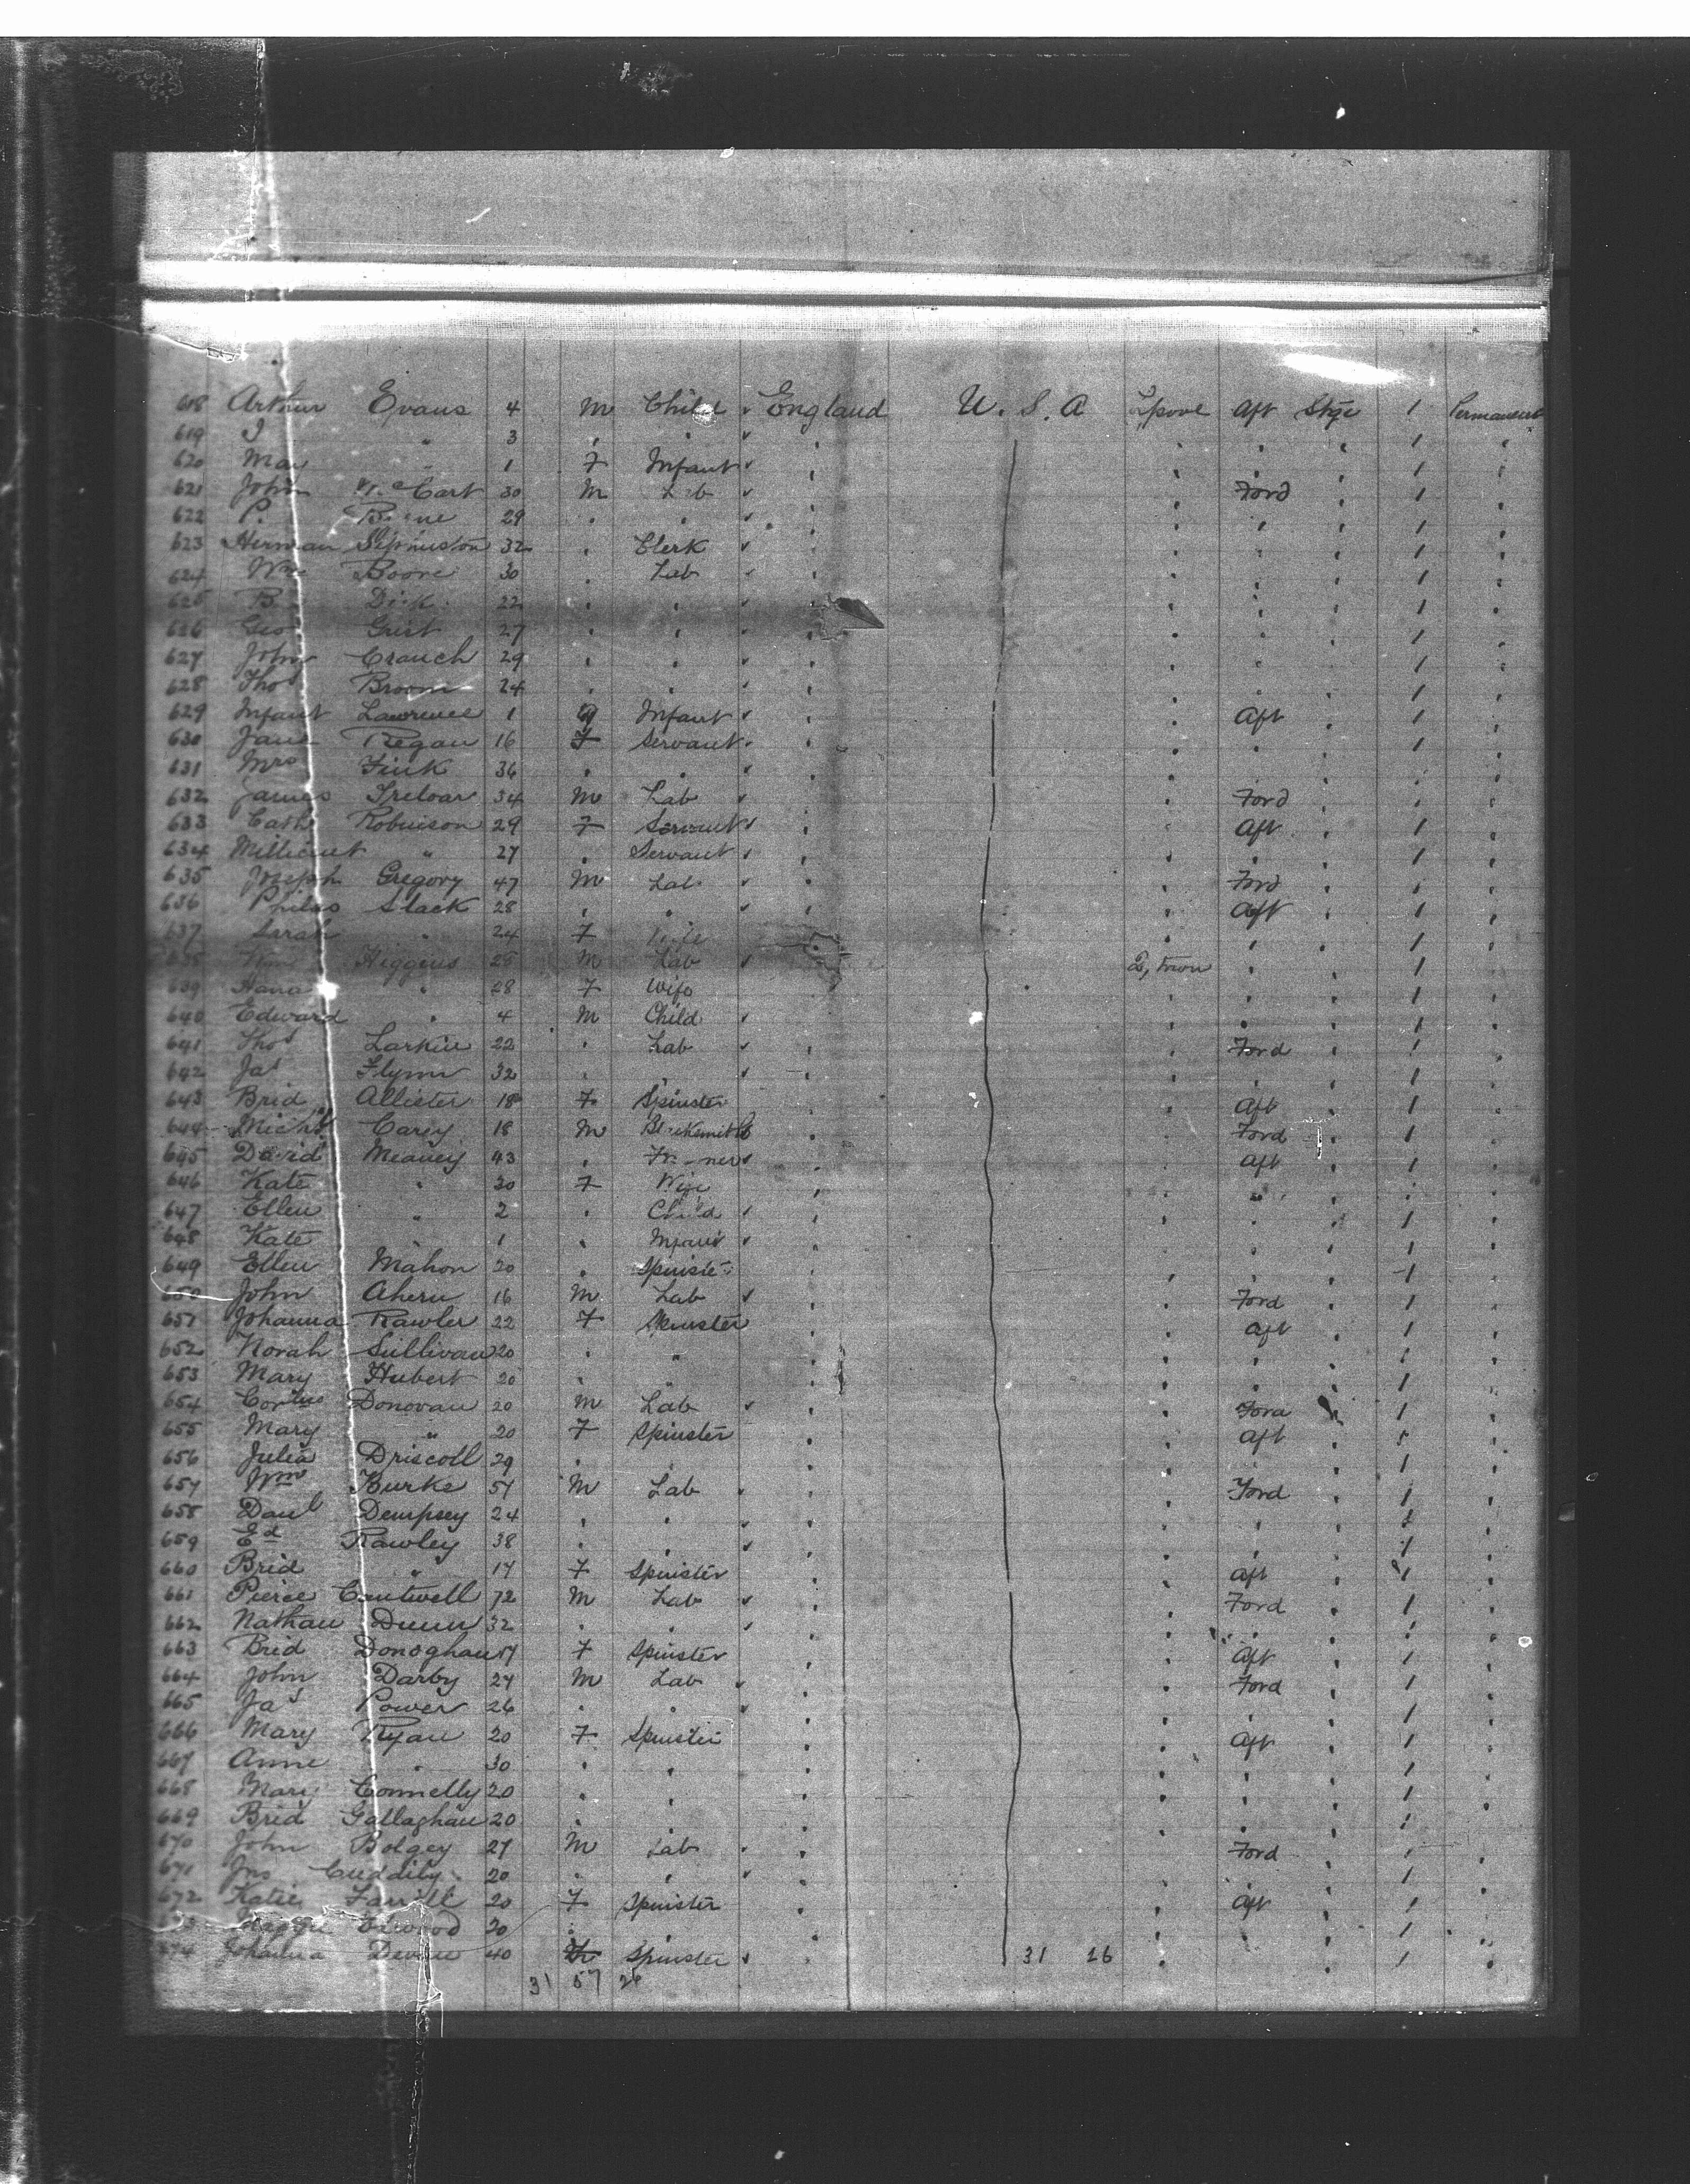 618 Arthur Evans 4 M Child England U.S.A Lpool Aft Stge 1 Permanent
619 J " 3 " " 1
620 May " 1 F Infant 1
621 John Cart 30 M Lab Ford 1
622 P. 29 " " 1
623 Herman 32 " Clerk 1
624 Wm Boore 30 " Lab 1
625 B Dick 22 " " 1
626 Geo Grist 27 " " 1
627 John Crauch 29 " " 1
628 Thos Broom 24 " " 1
629 Infant Lawrence 1 Infant Aft 1
630 Jane Regan 16 F Servant " 1
631 Mrs Fink 36 " "
632 James Treloar 34 M Lab Ford
633 Cath Robinson 29 F Servant Aft 1
634 Millicent " 27 " Servant " 1
635 Joseph Gregory 47 M Lab Ford
636 Philas Slack 28 " " Aft 1
637 Sarah " 24 F Wife " 1
Wm Higgins 28 M Lab Q, town " 1
639 Hana " 28 F Wife " 1
640 Edward " 4 M Child " 1
641 Thos Larkin 22 " Lab Ford 1
642 Jas Flynn 32 " " " 1
643 Brid Allister 18 F Spinster Aft 1
644 Michl Carey 18 M Blacksmith Ford 1
645 David Meaney 43 " Aft 1
646 Kate " 30 F Wife "
647 Ellen " 2 " Child " 1
648 Kate " 1 " Infant " 1
649 Ellen Mahon 20 " Spinster " 1
650 John Ahern 16 M Lab Ford 1
651 Johanna Rawler 22 F Spinster Aft 1
652 Norah Sullivan 20 " " " 1
653 Mary Hubert 20 " " " 1
654 Corlus Donovan 20 M Lab Ford 1
655 Mary " 20 F Spinster Aft 1
656 Julia Driscoll 29 " " " 1
657 Wm Burke 57 M Lab Ford 1
658 Danl Dempsey 24 " " " 1
659 Ed Rawley 38 " " " 1
660 Brid " 17 F Spinster Aft 1
661 Pierce Cantwell 72 M Lab Ford 1
662 Nathan Dunn 32 " " " 1
663 Brid Donoghau 17 F Spinster Aft 1
664 John Darby 27 M Lab Ford 1
665 Jas Power 26 " " " 1
666 Mary Ryan 20 F Spinster Aft 1
667 Anne " 30 " " " 1
668 Mary Connelly 20 " " " 1
669 Brid Gallaghau 20 " " " 1
670 John Bolgey 27 M Lab Ford 1
671 Jno Cuddily 20 " " " 1
672 Katie Farrill 20 F Spinster Aft 1
Maggie 20 " " " 1
674 Johanna Devine 40 Spinster 31 26 " 1
31 57 26